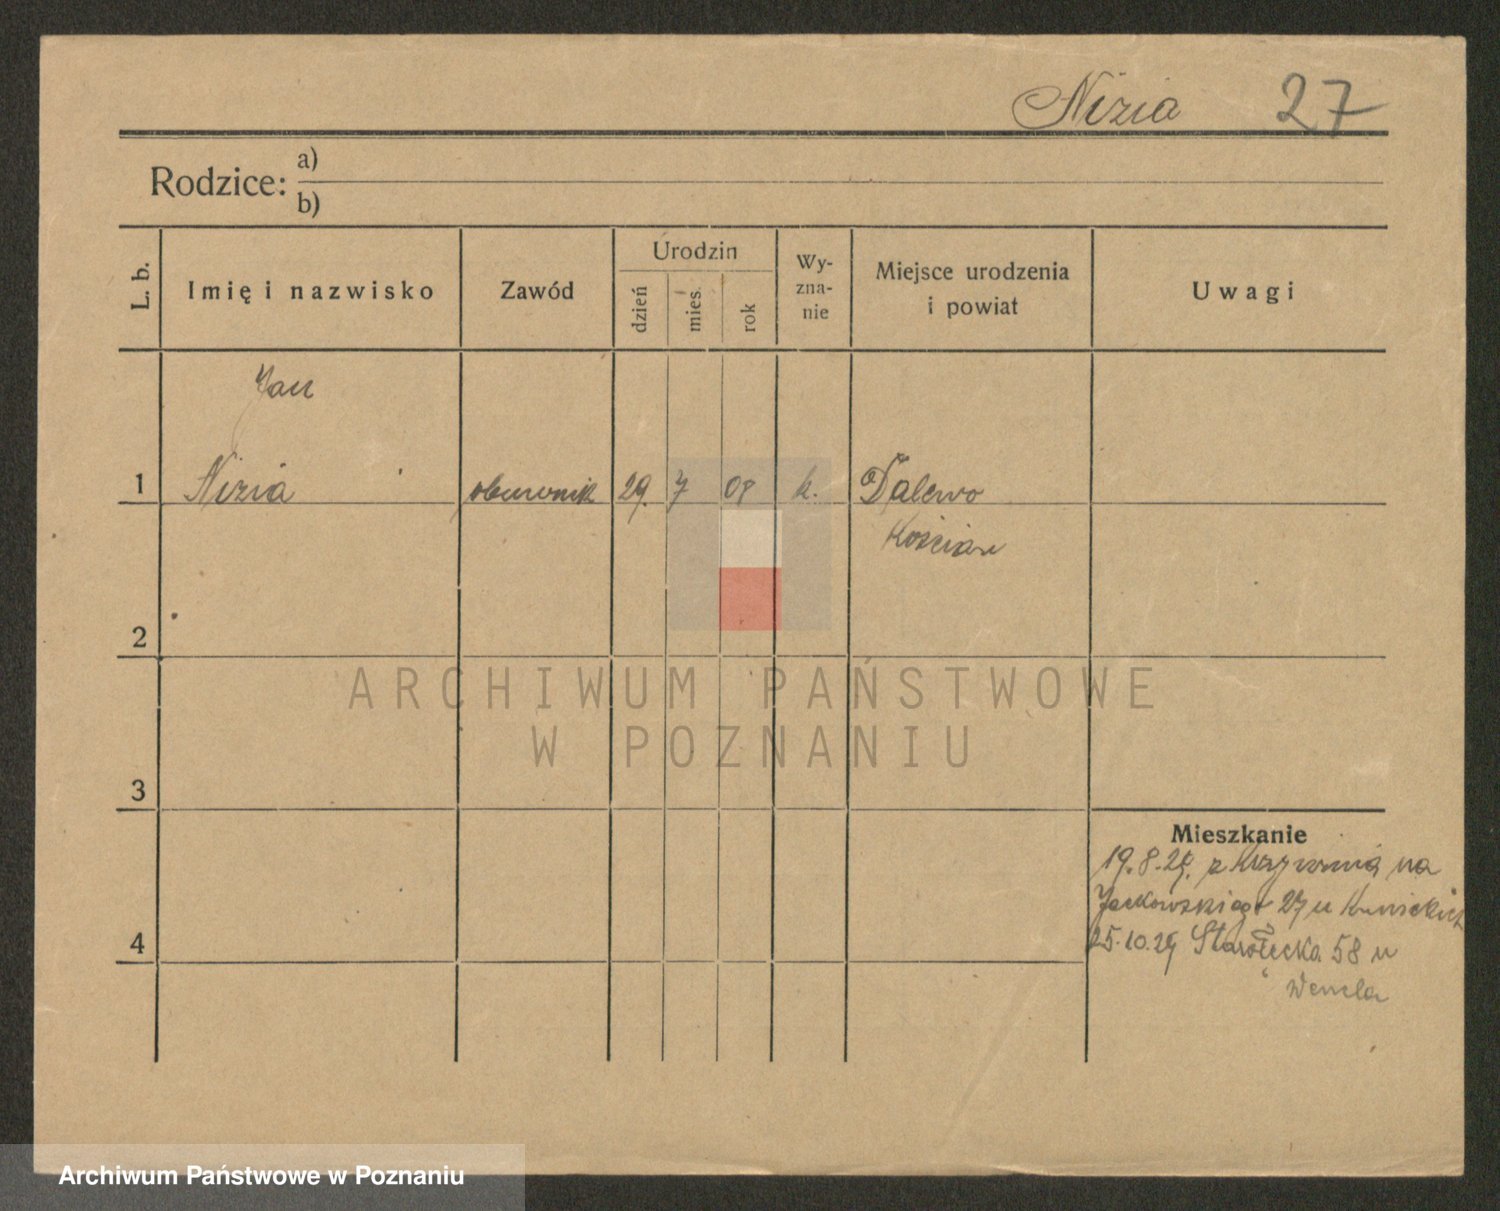 Nizia 27
Rodzice: a)
b)
L. b.
Imię i nazwisko
Zawód
Urodzin
dzień
mies.
rok
Wy-
zna-
nie
Miejsce urodzenia
i powiat
Uwagi
Jan
1 Nizia 29. 7 08 k. Dalewo
Kościan
2
ARCHIWUM PAŃSTWOWE
W POZNANIU
3
Mieszkanie
19.8.29. z Krzywinia na
Jackowskiego 27 u
4
25.10.29 Starołęcka 58 u
Archiwum Państwowe w Poznaniu